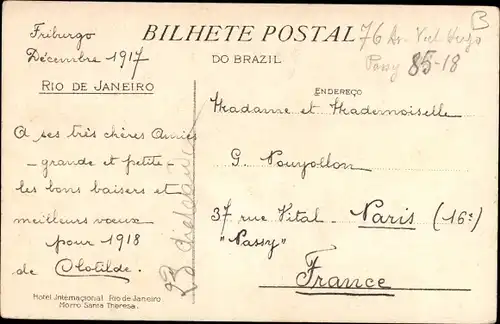 Friburgo
Décembre 1917
BILHETE POSTAL
DO BRAZIL
76 Av. Vict Hugo
Passy 85-18
B
RIO DE JANEIRO
ENDEREÇO
Madame et Mademoiselle
G. Nouyollon
37 rue Vital - Paris (16e)
"Passy"
France
A ses très chères Amies
- grande et petite -
les bons baisers et
meilleurs voeux
pour 1918
de Clotilde.
Hotel Internacional Rio de Janeiro
Morro Santa Theresa.